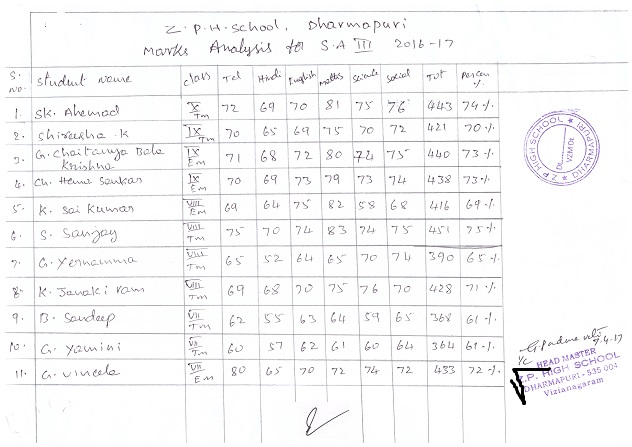 Z.P.H.School, Dharmapuri
Marks Analysis for S.A III 2016-17
S. No. Student Name Class Tel Hindi English Maths Science Social TOT Percen %
1. Sk. Ahemad X Tm 72 69 70 81 75 76 443 74%
2. Shirasha .K IX Tm 70 65 69 75 70 72 421 70%
3. G. Chaitanya Bala Krishna IX Em 71 68 72 80 74 75 440 73%
4. Ch. Hema Sankar IX Em 70 69 73 79 73 74 438 73%
5. K. Sai Kumar VIII Em 69 64 75 82 58 68 416 69%
6. S. Sanjay VIII Tm 75 70 74 83 74 75 451 75%
7. G. Yernamma VIII Tm 65 52 64 65 70 74 390 65%
8. K. Janaki ram VIII Tm 69 68 70 75 76 70 428 71%
9. B. Sandeep VII Tm 62 55 63 64 59 65 368 61%
10. G. Yamini Tm 60 57 62 61 60 64 364 61%
11. G. Vineela VII Em 80 65 70 72 74 72 433 72%
Z P HIGH SCHOOL ★ DHARMAPURI ★
VZM Dt.
7.4.17
I/C HEAD MASTER
Z.P. HIGH SCHOOL
DHARMAPURI - 535 004
Vizianagaram